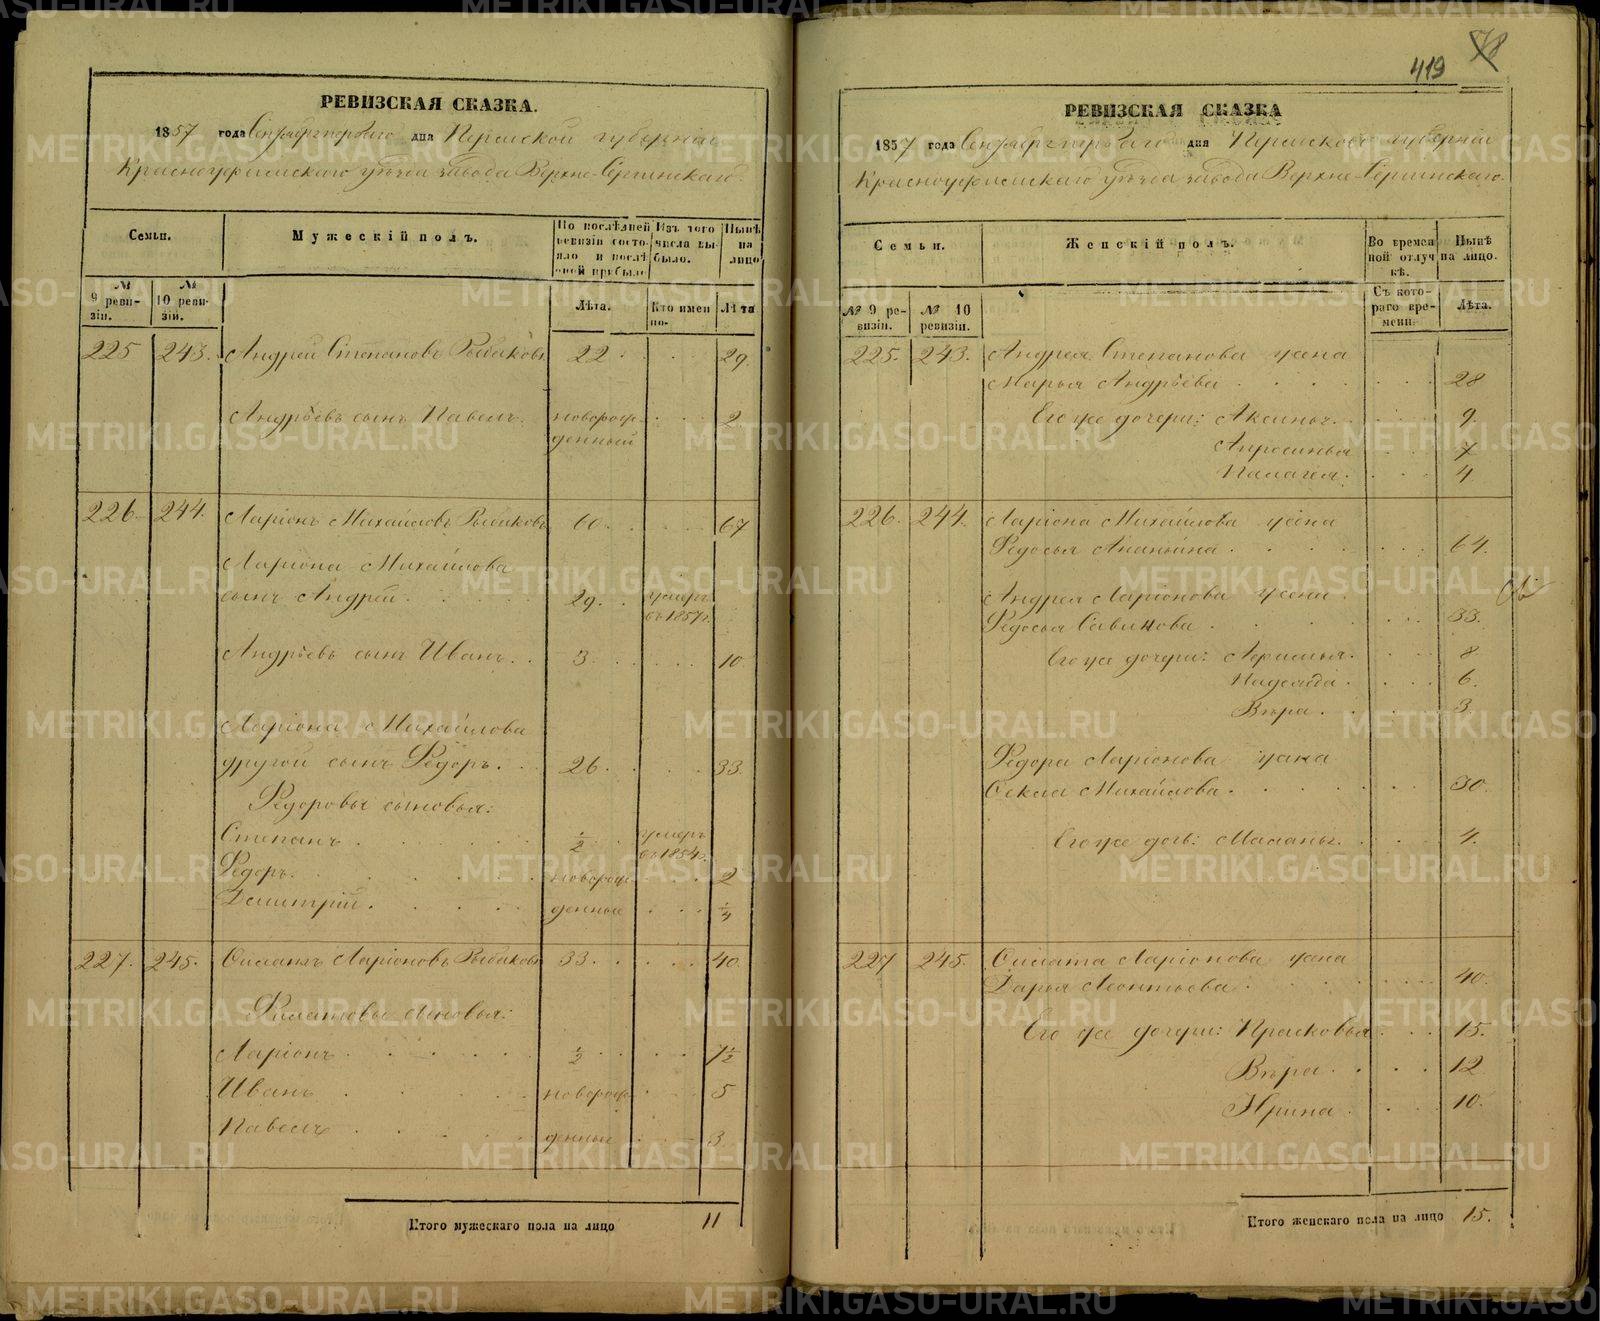 РЕВИЗСКАЯ СКАЗКА.
1857 года Сентября перваго дня Пермской губерніи
Красноуфимскаго уѣзда завода Верхне-Сергинскаго.
Семьи.
Мужескій полъ.
По послѣдней ревизіи состояло и послѣ оной прибыло
Изъ того числа выбыло.
Нынѣ на лицо
№ 9 ревизіи.
№ 10 ревизіи.
Лѣта.
Кто именно.
Лѣта
225 243. Андрей Степановъ Рыбаковъ 22 29.
Андрѣевъ сынъ Павелъ. новорожденный 2.
226. 244. Ларіонъ Михайловъ Рыбаковъ 60. 67
Ларіона Михайлова
сынъ Андрей 29. умеръ въ 1857 г.
Андрѣевъ сынъ Иванъ 3. 10
Ларіона Михайлова
другой сынъ Ѳедоръ. 26. 33.
Ѳедоровы сыновья:
Степанъ 1/2 умеръ въ 1854 г.
Ѳедоръ. новорож- 2
Дмитрій. денные 1/4
227. 245. Ларіоновъ Рыбаковъ 33. 40.
Филатовы сыновья:
Ларіонъ 1/2 7 1/2
Иванъ новорож 5
Павелъ денные 3
Итого мужескаго пола на лицо 11
419
РЕВИЗСКАЯ СКАЗКА
1857 года Сентября перваго дня Пермской губерніи
Красноуфимскаго уѣзда завода Верхне-Сергинскаго.
Семьи.
Женскій полъ.
Во временной отлучкѣ.
Нынѣ на лицо.
№ 9 ревизіи.
№ 10 ревизіи.
Съ котораго времени.
Лѣта.
225. 243. Андрея Степанова жена
Марья Андрѣева 28
Его же дочери: Аксинья. 9.
Апросинья 7
Палагея. 4
226. 244. Ларіона Михайлова жена
Ѳедосья Ананьина 64.
Андрея Ларіонова жена
Ѳедосья Савинова 33.
Его же дочери: 8
Надежда 6.
Вѣра. 3.
Ѳедора Ларіонова жена
Ѳекла Михайлова 30.
Его же дочь: Маланья. 4.
227 245. Ларіонова жена
Дарья Леонтьева 40.
Его же дочери: Прасковья 15.
Вѣра 12
Ирина 10.
Итого женскаго пола на лицо 15.
METRIKI.GASO-URAL.RU